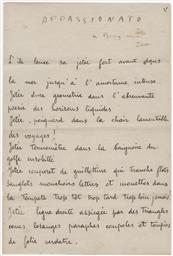 APPASSIONATO
S'il lance sa jetée fort avant dans
la mer jusqu'à l'amertume intense.
Jetée dure géométrie dans l'abreuvante
poésie des horizons liquides
Jetée, poignard dans la chair lamentable
des voyages!
Jetée Thermomètre dans la baignoire du
golfe
Jetée couperet de guillotine qui tranche flots
sanglots mouchoirs lettres et mouettes dans
la Tempête Trop tôt trop tard Trop loin jamais!
Jetée ligne droite assiégée par des Triangles
cônes losanges paraphes coupoles et toupies
de folie verdâtre.